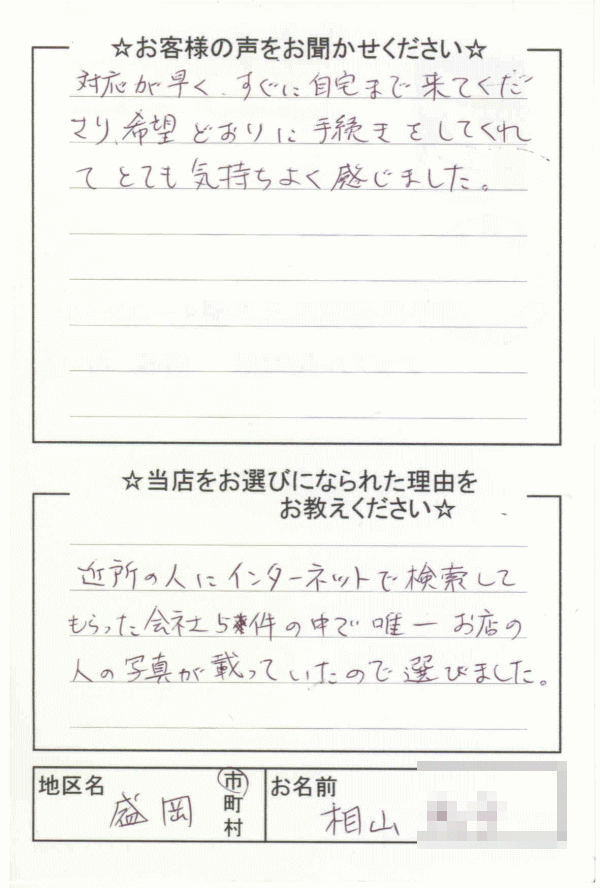 ☆お客様の声をお聞かせください☆
対応が早く、すぐに自宅まで来てくだ
さり、希望どおりに手続きをしてくれ
てとても気持ちよく感じました。
☆当店をお選びになられた理由を
お教えください☆
近所の人にインターネットで検索して
もらった会社5件の中で唯一お店の
人の写真が載っていたので選びました。
地区名 盛岡 市
町
村
お名前 相山